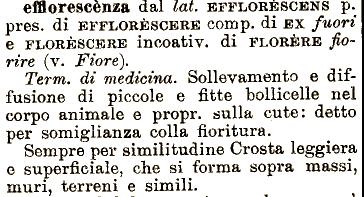 efflorescènza dal lat. EFFLORÈSCENS p.
pres. di EFFLORÈSCERE comp. di EX fuori
e FLORÈSCERE incoativ. di FLORÈRE fio-
rire (v. Fiore).
Term. di medicina. Sollevamento e dif-
fusione di piccole e fitte bollicelle nel
corpo animale e propr. sulla cute: detto
per somiglianza colla fioritura.
Sempre per similitudine Crosta leggiera
e superficiale, che si forma sopra massi,
muri, terreni e simili.